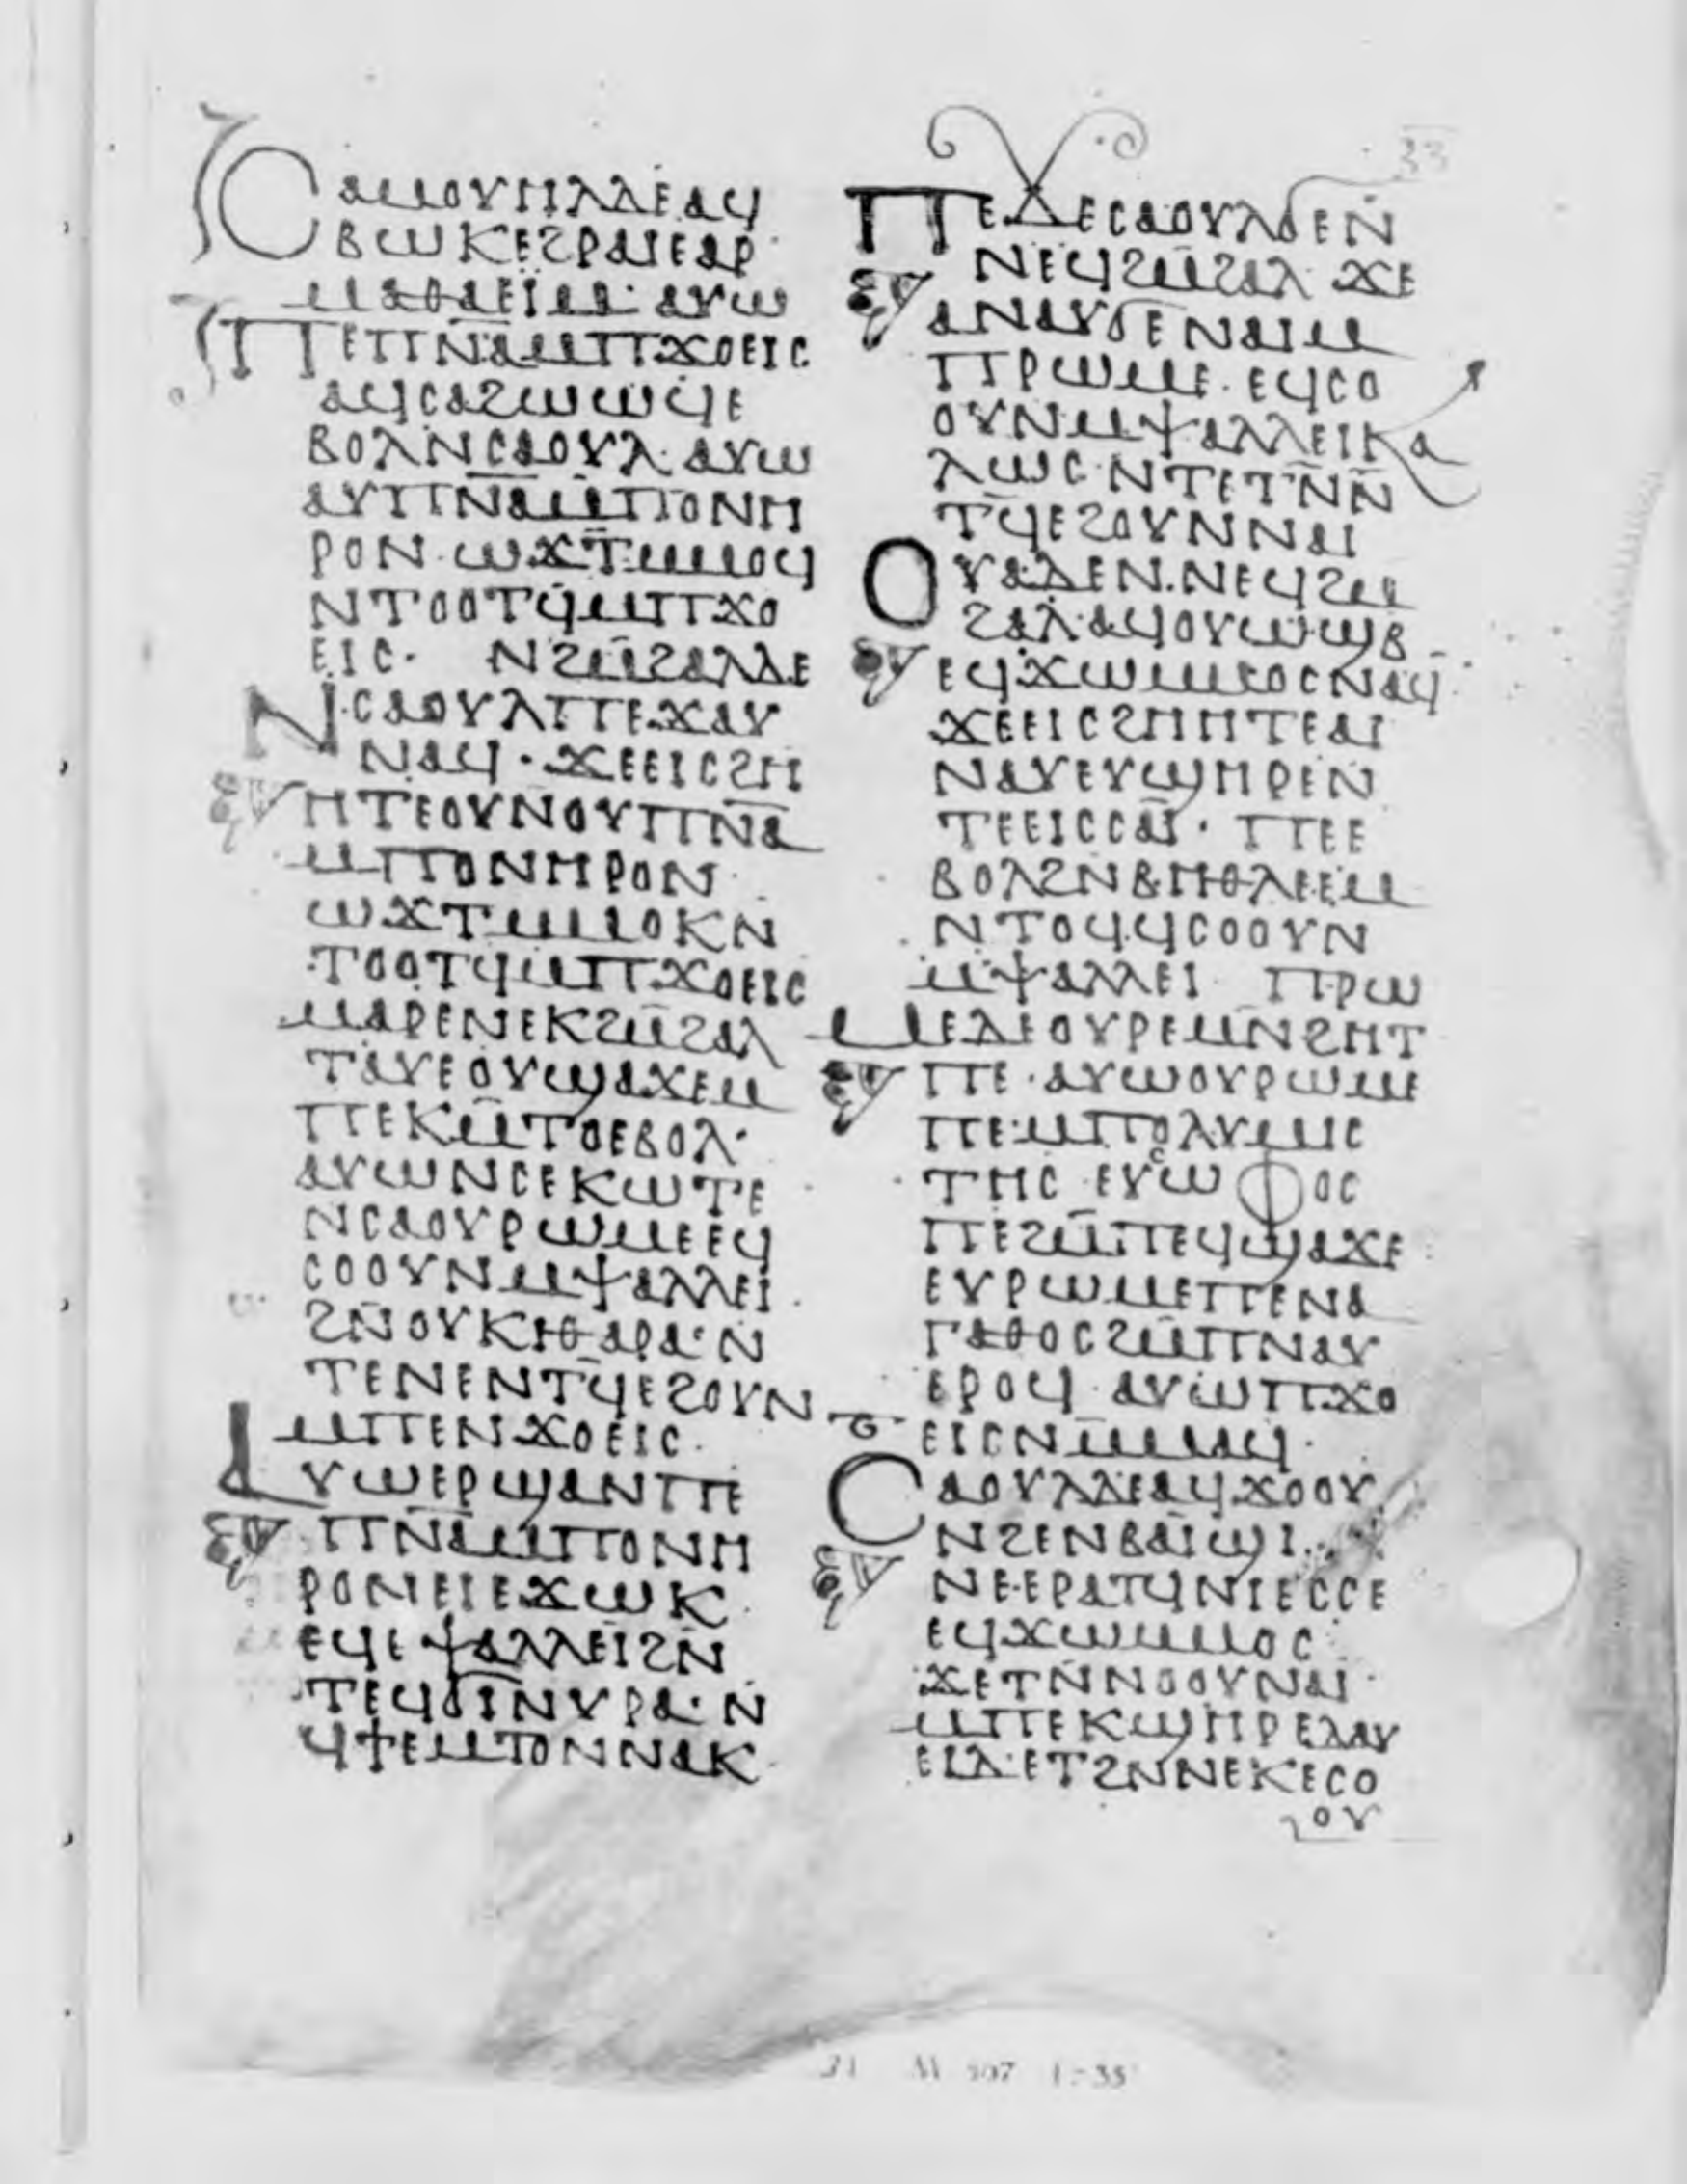 ⲤⲀⲘⲞⲨⲎⲖⲆⲈⲀϤ
ⲂⲰⲔⲈϨⲢⲀⲒⲈⲀⲢ
ⲘⲀⲐⲀⲈⲒⲘ· ⲀⲨⲰ
ⲠⲈⲠⲚ̅Ⲁ̅ⲘⲠϪⲞⲈⲒⲤ
ⲀϤⲤⲀϨⲰⲰϤⲈ
ⲂⲞⲖⲚⲤⲀⲞⲨⲖ· ⲀⲨⲰ
ⲀⲨⲠⲚ̅Ⲁ̅ⲘⲠⲞⲚⲎ
ⲢⲞⲚ· ⲰϪⲦ̅ⲘⲘⲞϤ
ⲚⲦⲞⲞⲦϤⲘⲠϪⲞ
ⲈⲒⲤ· ⲚϨⲘ̅ϨⲀⲖⲆⲈ
ⲚⲤⲀⲞⲨⲖⲠⲈϪⲀⲨ
ⲚⲀϤ· ϪⲈⲈⲒⲤϨⲎ
ⲎⲦⲈⲞⲨⲚⲞⲨⲠⲚ̅Ⲁ̅
ⲘⲠⲞⲚⲎⲢⲞⲚ
ⲰϪⲦ̅ⲘⲘⲞⲔⲚ
ⲦⲞⲞⲦϤⲘⲠϪⲞⲈⲒⲤ
ⲘⲀⲢⲈⲚⲈⲔϨⲘ̅ϨⲀⲖ
ⲦⲀⲨⲈⲞⲨϢⲀϪⲈⲘ
ⲠⲈⲔⲘ̅ⲦⲞⲈⲂⲞⲖ·
ⲀⲨⲰⲚⲤⲈⲔⲰⲦⲈ
ⲚⲤⲀⲞⲨⲢⲰⲘⲈⲈϤ
ⲤⲞⲞⲨⲚⲘⲮⲀⲖⲖⲈⲒ
ϨⲚ̅ⲞⲨⲔⲎⲐⲀⲢⲀ· Ⲛ
ⲦⲈⲚⲈⲚⲦ̅ϤⲈϨⲞⲨⲚ
ⲘⲠⲈⲚϪⲞⲈⲒⲤ·
ⲀⲨⲰⲈⲢϢⲀⲚⲠⲈ
ⲠⲚ̅Ⲁ̅ⲘⲠⲞⲚⲎ
ⲢⲞⲚⲈⲒⲈϪⲰⲔ
ⲈϤⲈⲮⲀⲖⲖⲈⲒϨⲚ̅
ⲦⲈϤϬⲒⲚⲨⲢⲀ· Ⲛ
ϤϮⲈⲘⲦⲞⲚⲚⲀⲔ
ⲠⲈϪⲈⲤⲀⲞⲨⲖϬⲈⲚ
ⲚⲈϤϨⲘ̅ϨⲀⲖ· ϪⲈ
ⲀⲚⲀⲨϬⲈⲚⲀⲒⲘ
ⲠⲢⲰⲘⲈ· ⲈϤⲤⲞ
ⲞⲨⲚⲘⲮⲀⲖⲖⲈⲒⲔⲀ
ⲖⲰⲤ· ⲚⲦⲈⲦⲚ̅Ⲛ̅
Ⲧ̅ϤⲈϨⲞⲨⲚⲚⲀⲒ
ⲞⲨⲀⲆⲈⲚ·ⲚⲈϤϨⲘ
ϨⲀⲖ·ⲀϤⲞⲨⲰϢⲂ
ⲈϤϪⲰⲘⲘⲞⲤⲚⲀϤ·
ϪⲈⲈⲒⲤϨⲎⲎⲦⲈⲀⲒ
ⲚⲀⲨⲈⲨϢⲎⲢⲈⲚ
ⲦⲈⲈⲒⲤⲤⲀⲒ̈· ⲠⲈⲈ
ⲂⲞⲖϨⲚⲂⲎⲐⲖⲈⲈⲘ
ⲚⲦⲞϤϤⲤⲞⲞⲨⲚ
ⲘⲮⲀⲖⲖⲈⲒ ⲠⲢⲰ
ⲘⲈⲆⲈⲞⲨⲢⲈⲘⲚ̅ϨⲎⲦ
ⲠⲈ· ⲀⲨⲰⲞⲨⲢⲰⲘⲈ
ⲠⲈ·ⲘⲠⲞⲖⲨⲘⲒⲤ
ⲦⲎⲤ ⲈⲨⲤⲰⲪⲞⲤ
ⲠⲈϨⲘ̅ⲠⲈϤϢⲀϪⲈ
ⲈⲨⲢⲰⲘⲈⲠⲈⲚⲀ
ⲄⲀⲐⲞⲤϨⲘ̅ⲠⲚⲀⲨ
ⲈⲢⲞϤ· ⲀⲨⲰⲠϪⲞ
ⲈⲒⲤⲚ̅ⲘⲘⲀϤ·
ⲤⲀⲞⲨⲖⲆⲈⲀϤϪⲞⲞⲨ
ⲚϨⲈⲚⲂⲀⲒ̈ϢⲒ
ⲚⲈ·ⲈⲢⲀⲦϤⲚⲒⲈⲤⲤⲈ
ⲈϤϪⲰⲘⲘⲞⲤ
ϪⲈⲦⲚ̅ⲚⲞⲞⲨⲚⲀⲒ·
ⲘⲠⲈⲔϢⲎⲢⲈⲆⲀⲨ
ⲈⲒⲆ·ⲈⲦϨⲚⲚⲈⲔⲈⲤⲞ
ⲞⲨ